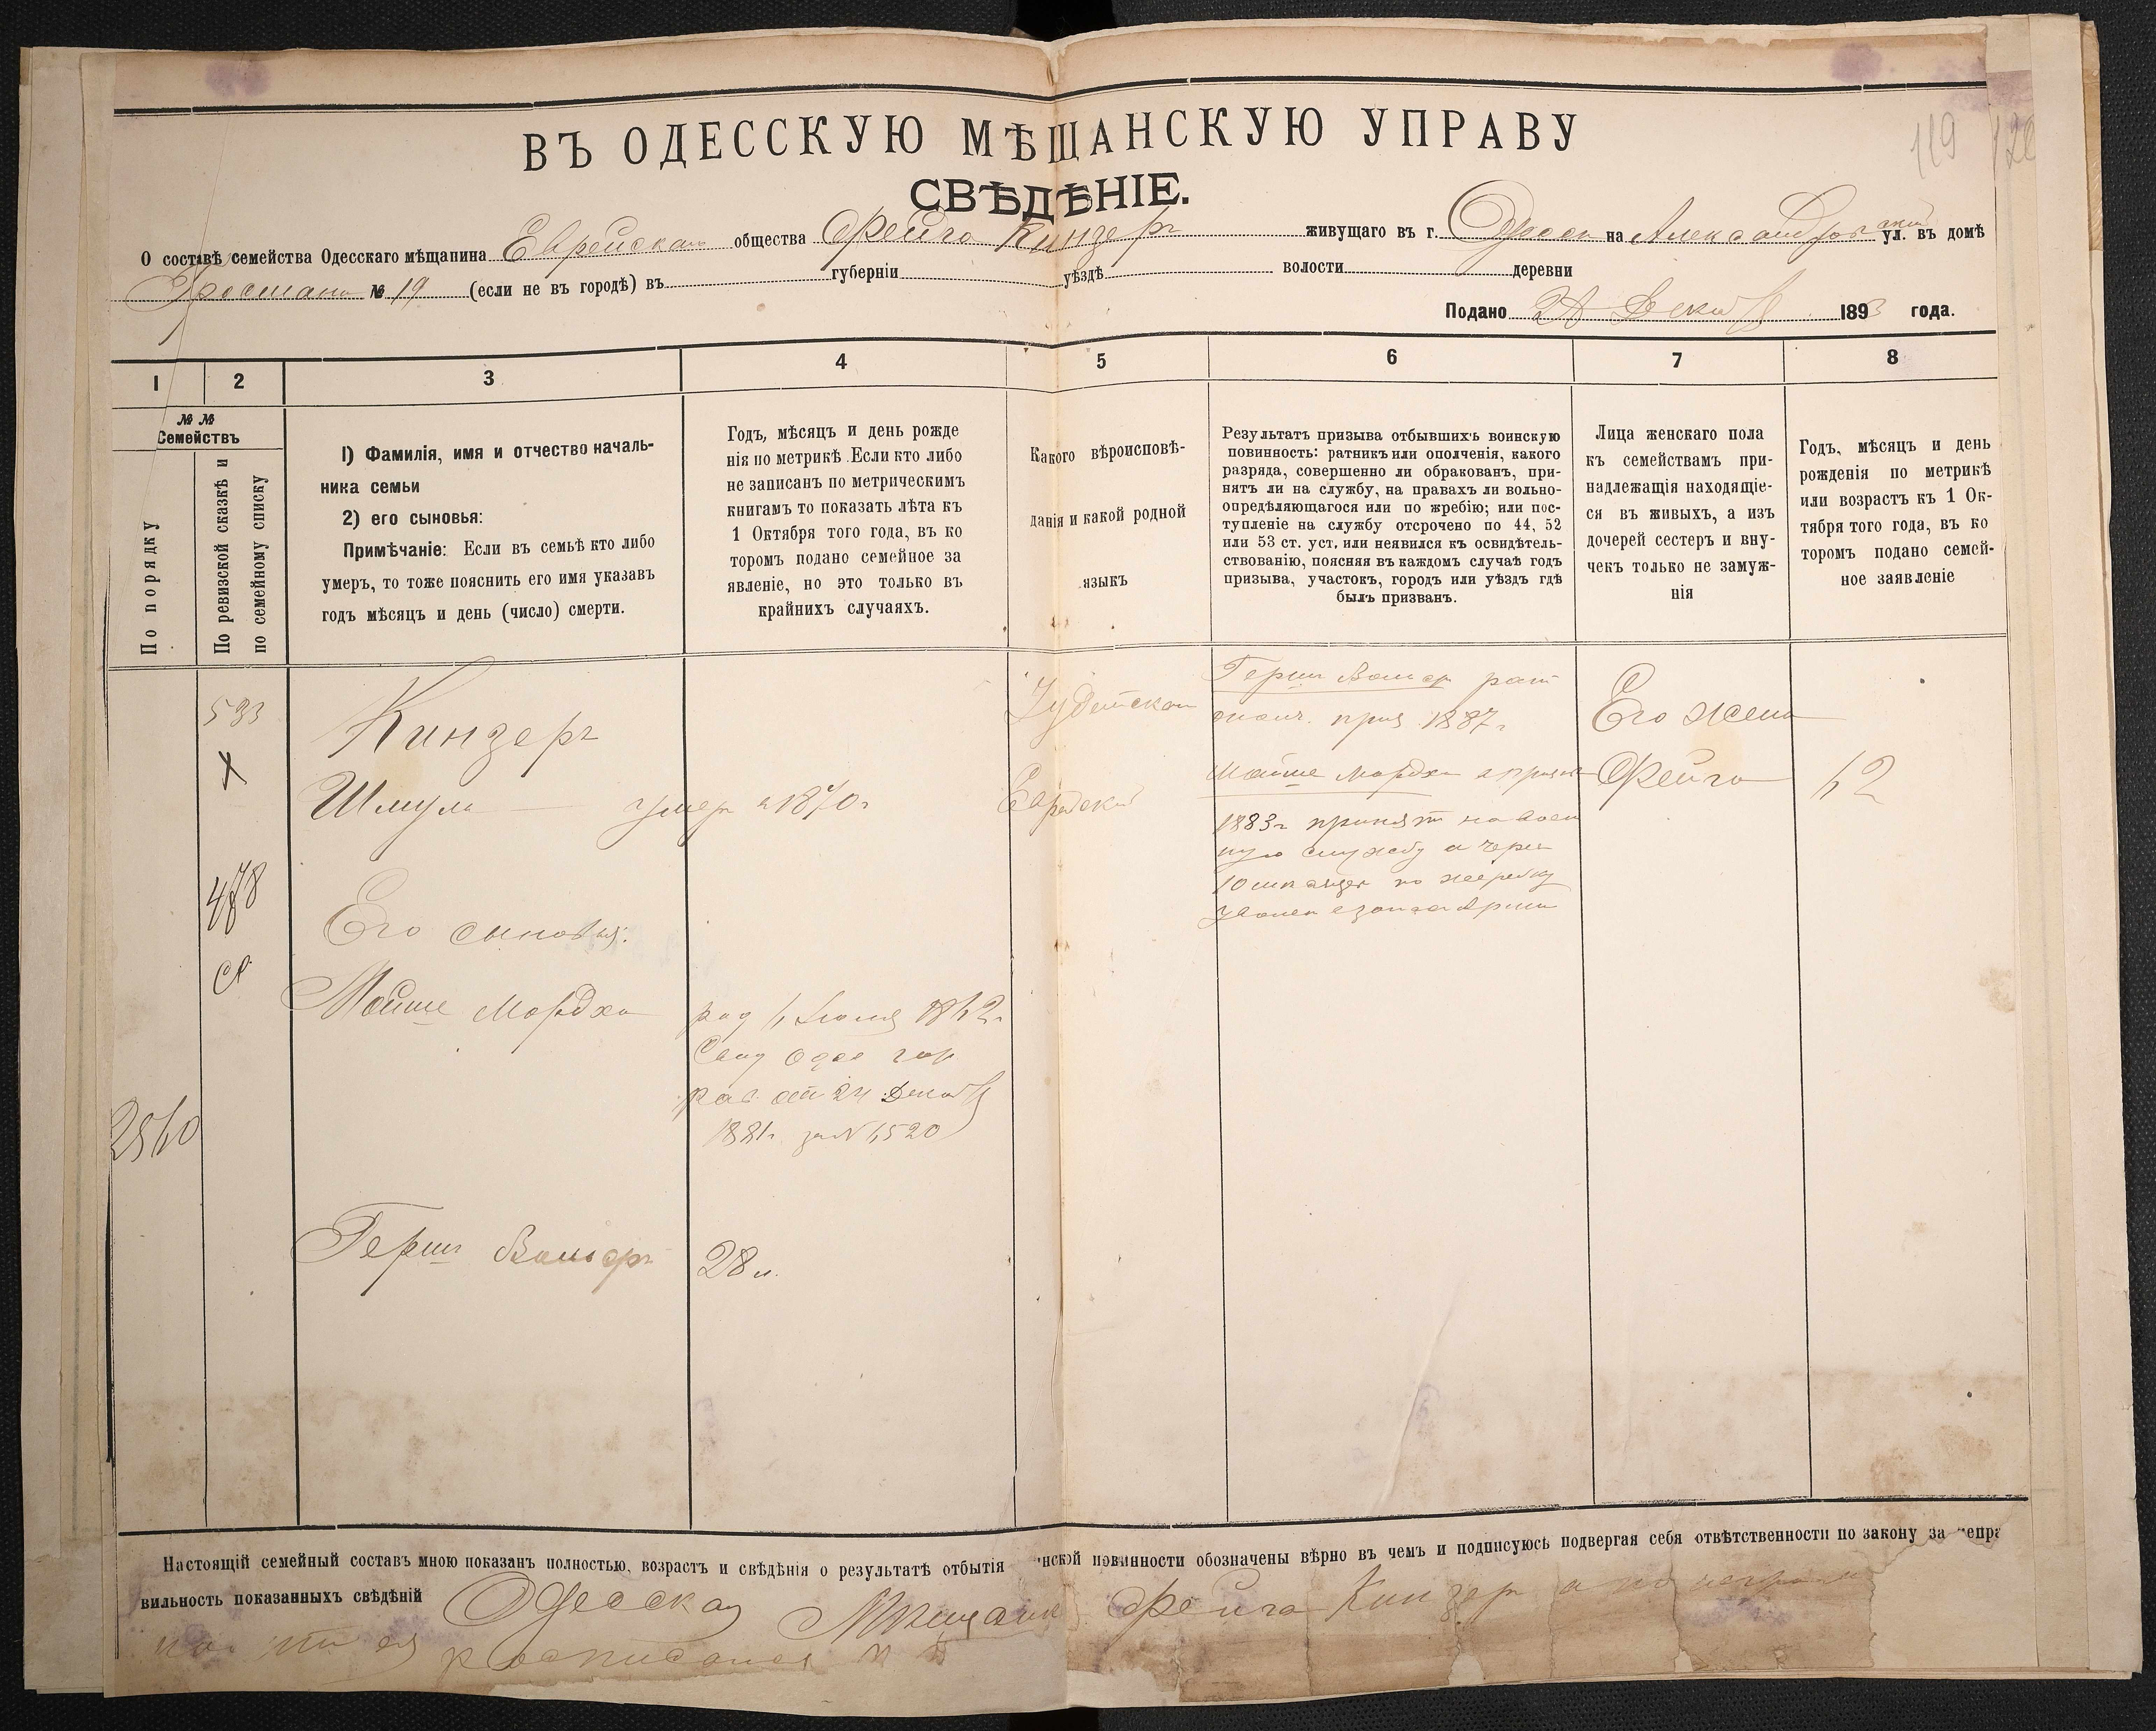 119 120
ВЪ ОДЕССКУЮ МѢЩАНСКУЮ УПРАВУ
СВѢДѢНІЕ.
О составѣ семейства Одесскаго мѣщанина Еврейскаго общества Фейга Кинзеръ живущаго въ г. Одесса на Александровской ул. въ домѣ
№ 19 (если не въ городѣ) въ губерніи уѣздѣ волости деревни
Подано 28 Декаб 1893 года.
1 2 3 4 5 6 7 8
№ №
Семействъ
По порядку
По ревизской сказкѣ и
по семейному списку
1) Фамилія, имя и отчество началь-
ника семьи
2) его сыновья:
Примѣчаніе: Если въ семьѣ кто либо
умеръ, то тоже пояснить его имя указавъ
годъ мѣсяцъ и день (число) смерти.
Годъ, мѣсяцъ и день рожде
нія по метрикѣ. Если кто либо
не записанъ по метрическимъ
книгамъ то показать лѣта къ
1 Октября того года, въ ко
торомъ подано семейное за
явленіе, но это только въ
крайнихъ случаяхъ.
Какого вѣроисповѣ-
данія и какой родной
языкъ
Результатъ призыва отбывшихъ воинскую
повинность: ратникъ или ополченія, какого
разряда, совершенно ли обракованъ, при-
нятъ ли на службу, на правахъ ли вольно-
опредѣляющагося или по жребію; или пос-
тупленіе на службу отсрочено по 44, 52
или 53 ст. уст. или неявился къ освидѣтель-
ствованію, поясняя въ каждомъ случаѣ годъ
призыва, участокъ, городъ или уѣздъ гдѣ
былъ призванъ.
Лица женскаго пола
къ семействамъ при-
надлежащія находящіе-
ся въ живыхъ, а изъ
дочерей сестеръ и вну-
чекъ только не замуж-
нія
Годъ, мѣсяцъ и день
рожденія по метрикѣ
или возрастъ къ 1 Ок-
тября того года, въ ко
торомъ подано семей-
ное заявленіе
533
Х
478
Кинзеръ
Шмуль умер в 1870г
Его сыновья:
Мойше Мордха
род Іюля
Одес гор
рав от 24 Декаб
1881г за №
Герш
28 л.
Іудейскаго
Еврейскій
Герш рат
опол. приз 1887г
Мойше Мордха
1883г принят на воен
ную службу а через
по жеребку
Его жена
Фейга
Настоящій семейный составъ мною показанъ полностью, возрастъ и свѣдѣнія о результатѣ отбытія нской повинности обозначены вѣрно въ чемъ и подписуюсь подвергая себя отвѣтственности по закону за непра
вильность показанныхъ свѣдѣній Одесская Мѣщанк Фейга Кинзеръ а по неграмот